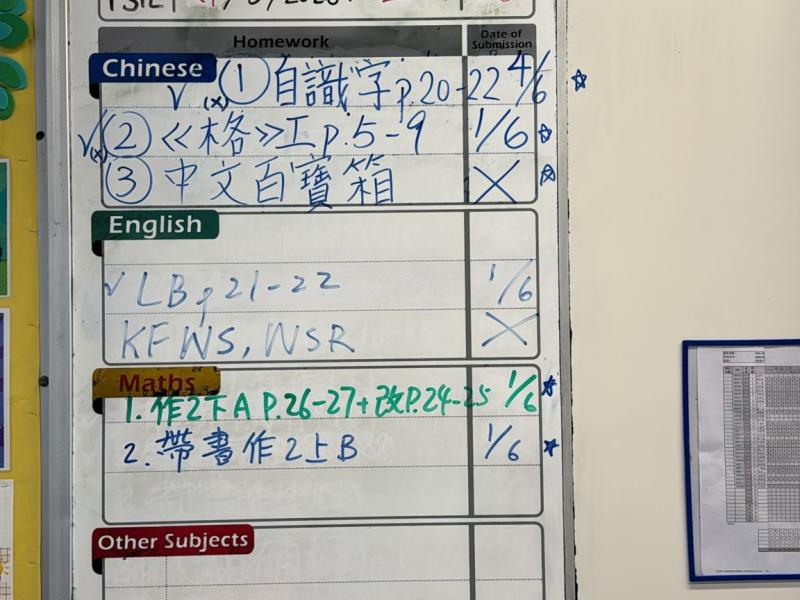 Homework
Date of Submission
Chinese
✓ (x) ① 自識字 p.20-22 4/6 ☆
✓ (x) ② 《格》工 p.5-9 1/6 ☆
③ 中文百寶箱 X ☆
English
✓ LB p21-22 1/6
KFWS, WSR X
Maths
1. 作2下A P.26-27+改P.24-25 1/6 ★
2. 帶書作2上B 1/6 ★
Other Subjects